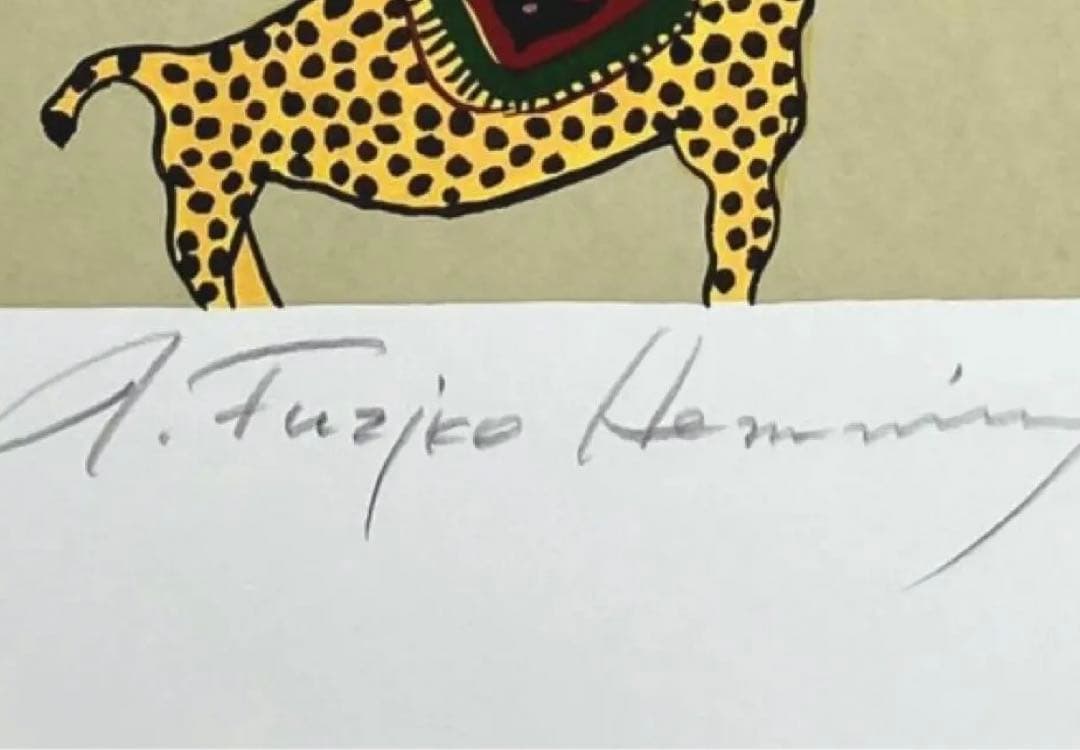 J. Fuzjko Hemming